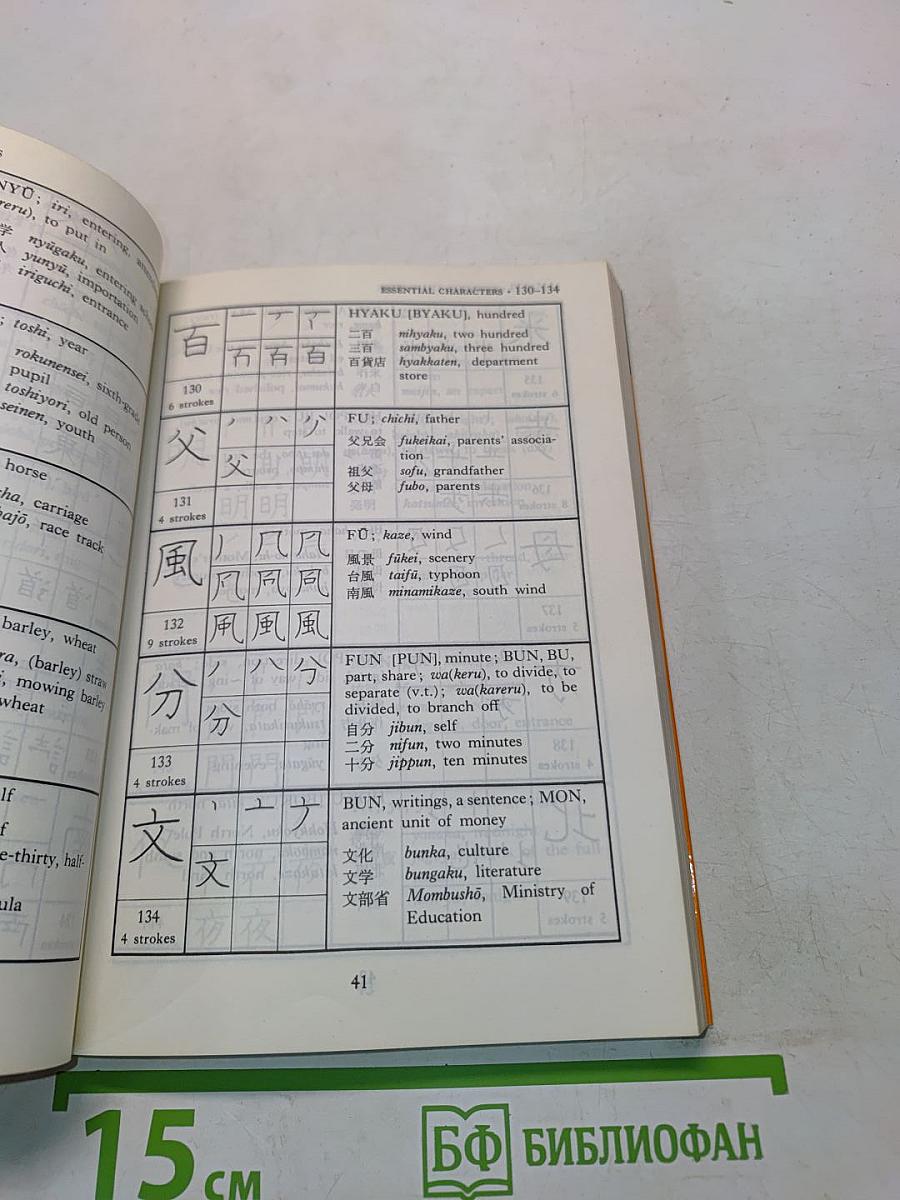 NYŪ; iri, entering,
reru), to put in
学 nyūgaku, entering
人 yunyū, importation
iriguchi, entrance
; toshi, year
rokunensei, sixth-grade
pupil
toshiyori, old person
seinen, youth
horse
cha, carriage
bajō, race track
barley, wheat
ra, (barley) straw
i, mowing barley
wheat
lf
f
e-thirty, half-
ula
ESSENTIAL CHARACTERS • 130–134
百
130
6 strokes
HYAKU [BYAKU], hundred
二百 nihyaku, two hundred
三百 sambyaku, three hundred
百貨店 hyakkaten, department
store
父
131
4 strokes
FU; chichi, father
父兄会 fukeikai, parents' associa-
tion
祖父 sofu, grandfather
父母 fubo, parents
風
132
9 strokes
FŪ; kaze, wind
風景 fūkei, scenery
台風 taifū, typhoon
南風 minamikaze, south wind
分
133
4 strokes
FUN [PUN], minute; BUN, BU,
part, share; wa(keru), to divide, to
separate (v.t.); wa(kareru), to be
divided, to branch off
自分 jibun, self
二分 nifun, two minutes
十分 jippun, ten minutes
文
134
4 strokes
BUN, writings, a sentence; MON,
ancient unit of money
文化 bunka, culture
文学 bungaku, literature
文部省 Mombushō, Ministry of
Education
41
15 см
БФ БИБЛИОФАН